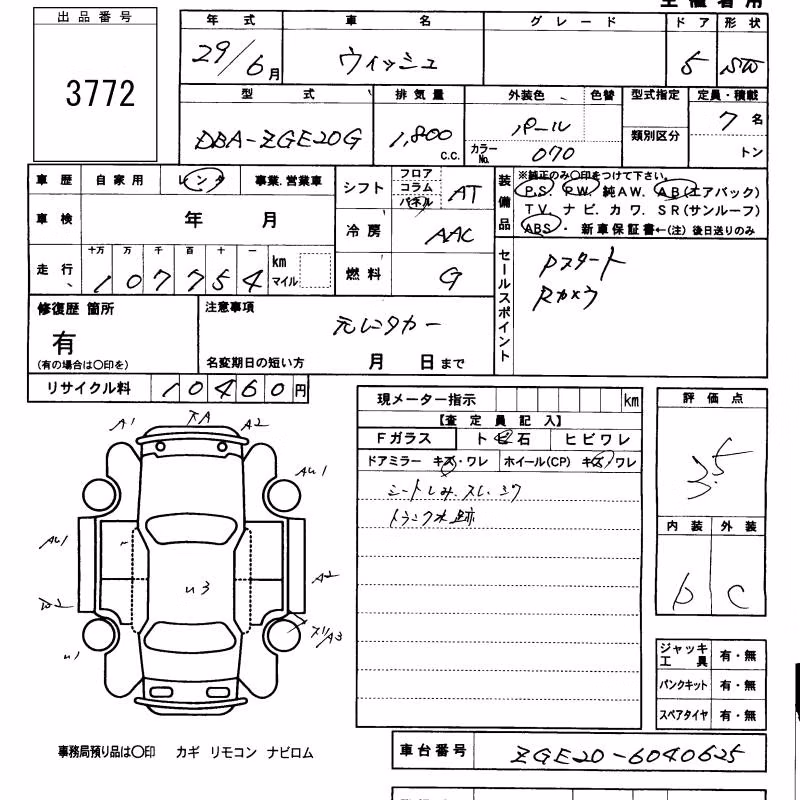 出品番号
3772
年式 車名 グレード ドア 形状
29/6月 ウィッシュ 5 SW
型式 排気量 外装色 色替 型式指定 定員・積載
DBA-ZGE20G 1,800 C.C. パール 類別区分 7名
カラーNo. 070 トン
車歴 自家用 レンタ 事業.営業車
車検 年 月
走行 十万 万 千 百 十 一 km マイル
107754
シフト フロア コラム パネル AT
冷房 AAC
燃料 G
装備品 ※純正のみ〇印をつけて下さい。
P.S. P.W. 純AW. AB(エアバック)
TV. ナビ. カワ. SR(サンルーフ)
ABS・ 新車保証書←(注) 後日送りのみ
セールスポイント
Pスタート
Rカメラ
修復歴 箇所
有
(有の場合は〇印を)
注意事項
元レンタカー
名変期日の短い方 月 日まで
リサイクル料 10460円
現メーター指示 km
【査定員記入】
Fガラス ト ビ 石 ヒビワレ
ドアミラー キズ・ワレ ホイール(CP) キズ ワレ
シートしみ.スレ.シワ
トランク水跡
評価点
3.5
内装 外装
b C
A1 XA A2
AU1
AU1
A2
U3
U1
ジャッキ工具 有・無
パンクキット 有・無
スペアタイヤ 有・無
事務局預り品は〇印 カギ リモコン ナビロム
車台番号 ZGE20-6040625